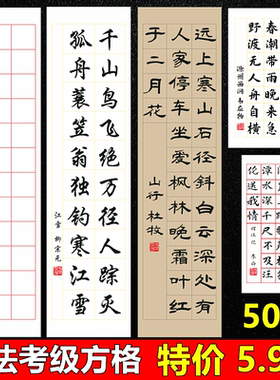 春潮带雨晚来急
野渡无人舟自横
滁州西涧 韦应物
千山鸟飞绝万径人踪灭
孤舟蓑笠翁独钓寒江雪
江雪 柳宗元
远上寒山石径斜白云深处有
人家停车坐爱枫林晚霜叶红
于二月花
山行 杜牧
潭水深千尺不及汪
伦送我情
赠汪伦 李白
50
法考级方格 特价 5.9